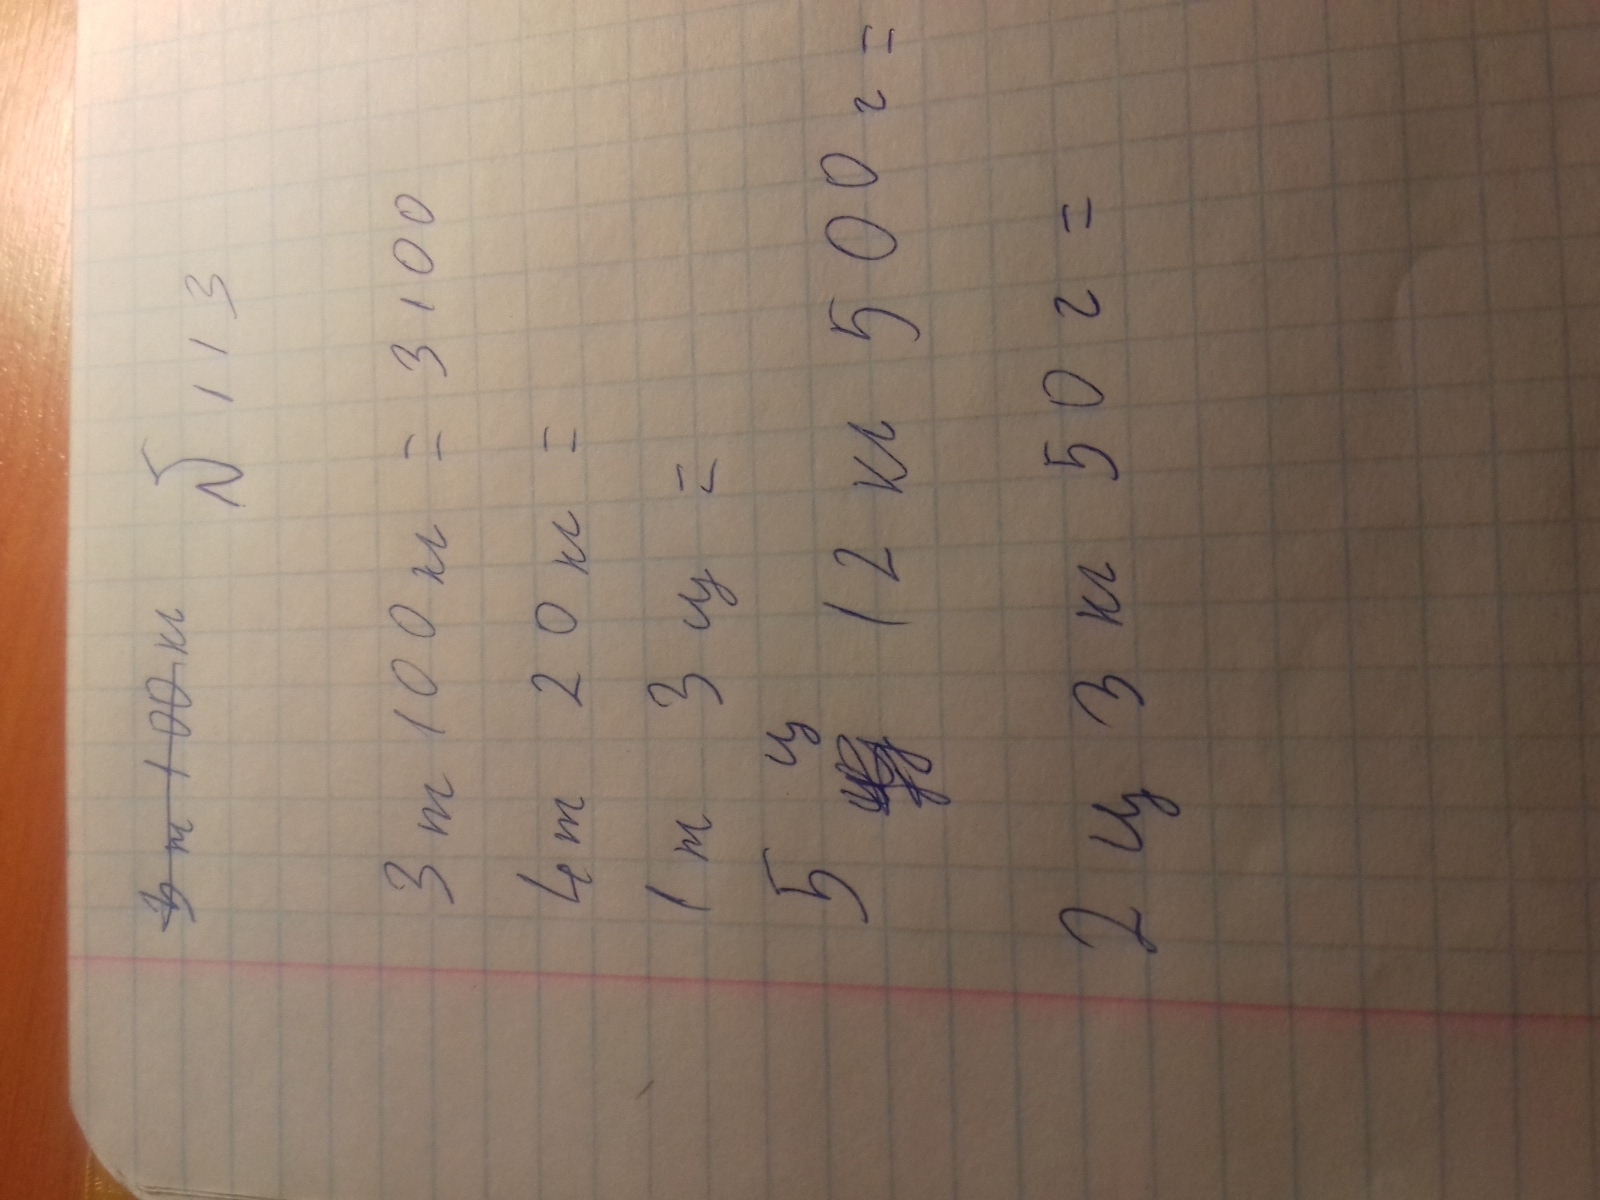 3 т 100 кг
№ 113
3 т 100 кг = 3100
4 т 20 кг =
1 т 3 ц =
5 ц 12 кг 500 г =
2 ц 3 кг 50 г =